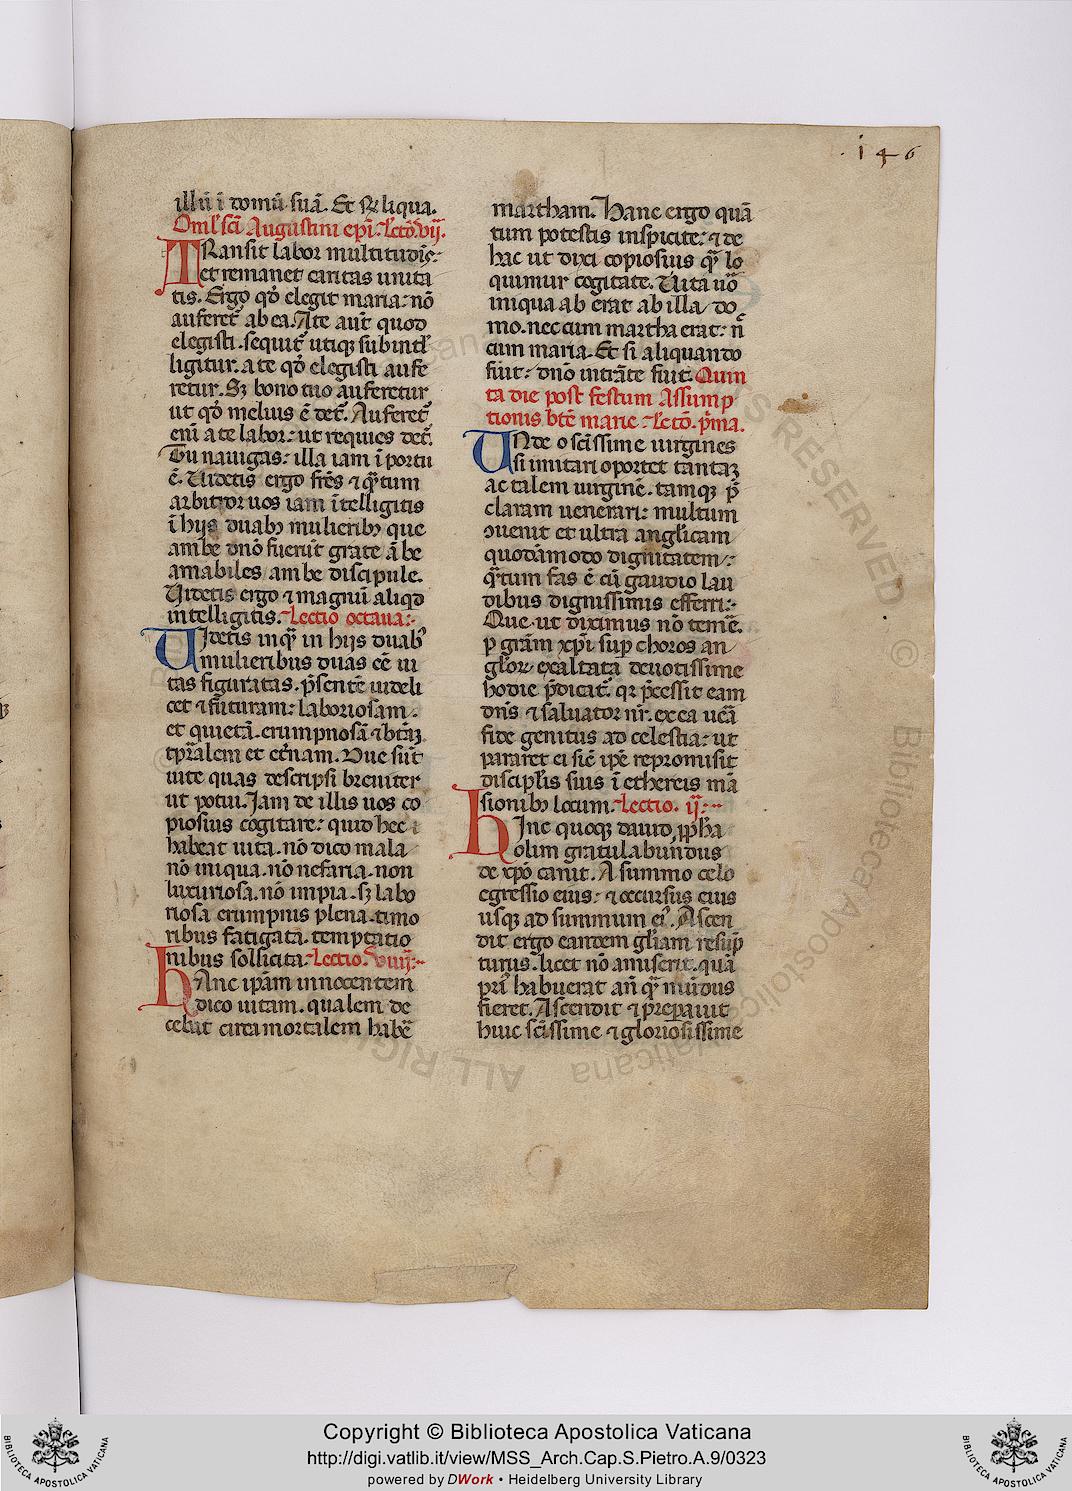 · 146
illū ī domū suā. Et rֿliqua.
Omlֿ sci Augustini epi. Lcto. vij.
TRansit labor multitudīs:
et remanet caritas unita
tis. Ergo qð elegit maria: nō
auferet᷑ ab ea. A te aut̄ quod
elegisti. sequit᷑ utiqꝫ subintl̄
ligitur. a te qð elegisti aufe
retur. Sꝫ bono tuo auferetur
ut qð melius ē det᷑. Auferet᷑
eni a te labor: ut requies det᷑.
Tu nauigas: illa iam ī portu
ē. Uidetis ergo fres ⁊ qͣtum
arbitror uos iam ītelligitis
ī hijs duabꝫ mulieribꝫ que
ambe dno fuerūt grate ābe
amabiles ambe discipule.
Uidetis ergo ⁊ magnū aliqd
intelligitis. Lectio octaua:
UIdetis inqͣ in hijs duabꝰ
mulieribus duas eē ui
tas figuratas. p̄sentē uideli
cet ⁊ futuram: laboriosam.
et quietā. erumpnosā ⁊ btāꝫ
tpralem et etnam. Due sūt
uite quas descripsi breuiter
ut potui. Jam de illis uos co
piosius cogitare: quid hec
habeat uita. nō dico mala
nō iniqua. nō nefaria. non
luxuriosa. nō impia. sꝫ labo
riosa erumpnis plena. timo
ribus fatigata. temptatio
nibus sollicita. Lectio. viiij:
HAnc ipam innocentem
dico uitam. qualem de
cebat circa mortalem habē
martham. Hanc ergo quā
tum potestis inspicite: ⁊ de
hac ut dixi copiosius qͣ lo
quimur cogitate. Uita uō
iniqua ab erat ab illa do
mo. nec cum martha erat: n̄
cum maria. Et si aliquando
fuit: dno intrāte fuit. Quin
ta die post festum Assump
tionis bte marie. Lcto. pͥma.
UNde o scissime uirgines
si imitari oportet tantaꝫ
ac talem uirginē. tamqꝫ p̄
claram uenerari: multum
ꝯuenit et ultra anglicam
quodāmodo dignitatem:
qͣtum fas ē cū gaudio lau
dibus dignissimis efferri:
Que ut diximus nō temē.
p gram xpi sup choros an
glor exaltata deuotissime
hodie p̄dicat᷑. qr p̄cessit eam
dns ⁊ saluator nr. ex ea uera
fide genitus ad celestia: ut
pararet ei sic ipe repromisit
disciplis suis ī ethereis mā
sionibꝫ locum. Lectio. ij:
HInc quoqꝫ dauid ppha
olim gratulabundus
de xpo canit. A summo celo
egressio eius: ⁊ occursus eius
usqꝫ ad summum eiꝰ. Ascen
dit ergo eandem glam resup
turus. licet nō amiserit. quā
pri habuerat an̄ qͣ mūdus
fieret. Ascendit ⁊ preparauit
huic scissime ⁊ gloriosissime
Copyright © Biblioteca Apostolica Vaticana
http://digi.vatlib.it/view/MSS_Arch.Cap.S.Pietro.A.9/0323
powered by DWork • Heidelberg University Library